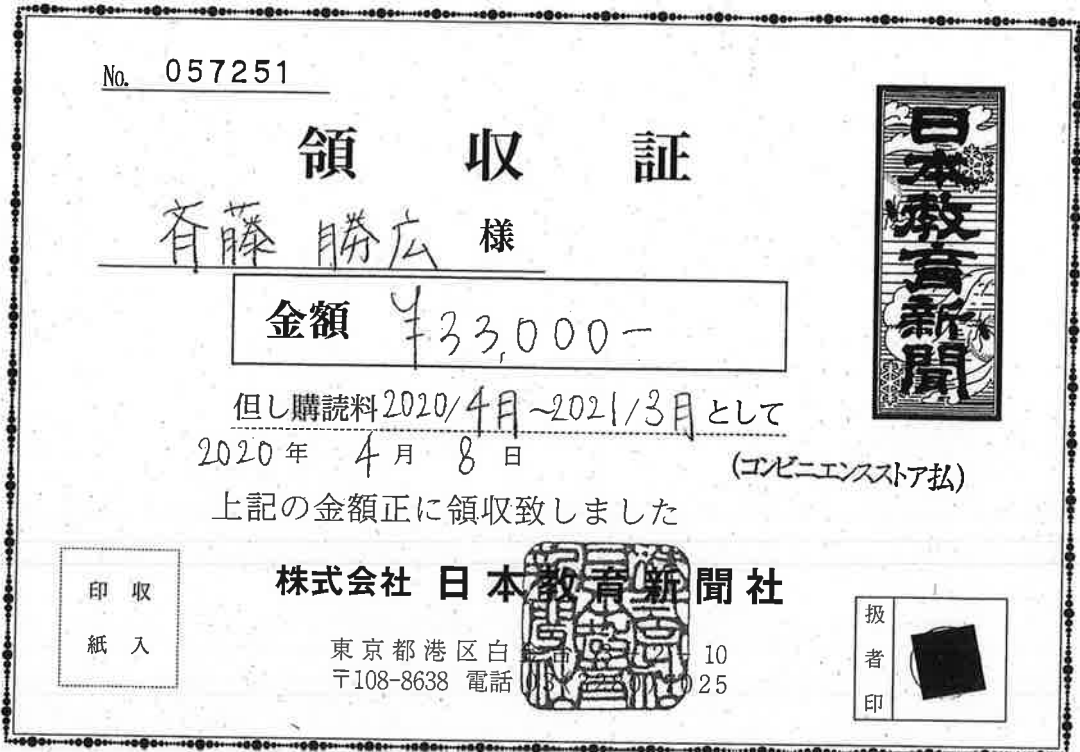 No. 057251
領収証
斉藤 勝広 様
金額 ¥33,000−
但し購読料2020/4月~2021/3月として
2020年 4月 8日
(コンビニエンスストア払)
上記の金額正に領収致しました
株式会社 日本教育新聞社
東京都港区白 10
〒108-8638 電話 25
収入印紙
扱者印
日本教育新聞